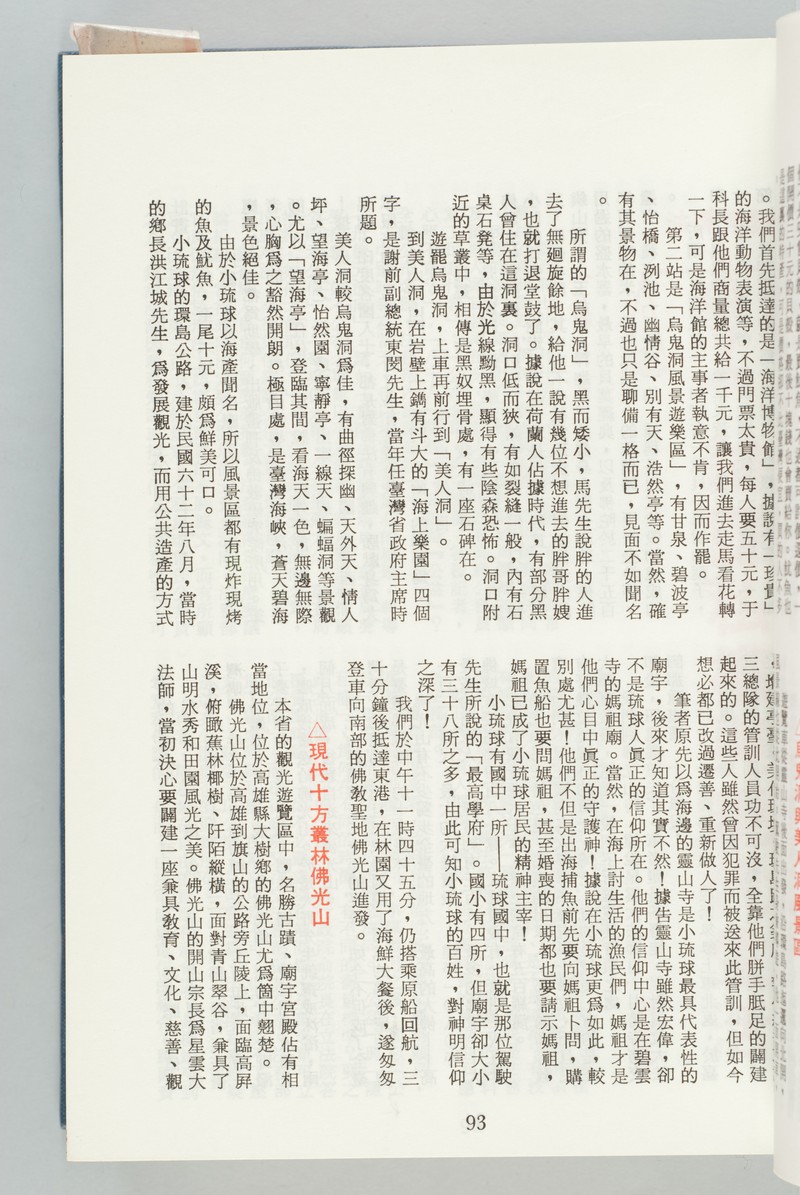 。我們首先抵達的是「海洋博物館」，據說有「珍貴」
的海洋動物表演等，不過門票太貴，每人要五十元，于
科長跟他們商量總共給一千元，讓我們進去走馬看花轉
一下，可是海洋館的主事者執意不肯，因而作罷。
第二站是「烏鬼洞風景遊樂區」，有甘泉、碧波亭
、怡橋、洌池、幽情谷、別有天、浩然亭等。當然，確
有其景物在，不過也只是聊備一格而已，見面不如聞名
。
所謂的「烏鬼洞」，黑而矮小，馬先生說胖的人進
去了無廻旋餘地，給他一說有幾位不想進去的胖哥胖嫂
，也就打退堂鼓了。據說在荷蘭人佔據時代，有部分黑
人曾住在這洞裏。洞口低而狹，有如裂縫一般，內有石
桌石凳等，由於光線黝黑，顯得有些陰森恐怖。洞口附
近的草叢中，相傳是黑奴埋骨處，有一座石碑在。
遊罷烏鬼洞，上車再前行到「美人洞」。
到美人洞，在岩壁上鐫有斗大的「海上樂園」四個
字，是謝前副總統東閔先生，當年任臺灣省政府主席時
所題。
美人洞較烏鬼洞為佳，有曲徑探幽、天外天、情人
坪、望海亭、怡然園、寧靜亭、一線天、蝙蝠洞等景觀
。尤以「望海亭」，登臨其間，看海天一色，無邊無際
，心胸為之豁然開朗。極目處，是臺灣海峽，蒼天碧海
，景色絕佳。
由於小琉球以海產聞名，所以風景區都有現炸現烤
的魚及魷魚，一尾十元，頗為鮮美可口。
小琉球的環島公路，建於民國六十二年八月，當時
的鄉長洪江城先生，為發展觀光，而用公共造產的方式
三總隊的管訓人員功不可沒，全靠他們胼手胝足的闢建
起來的。這些人雖然曾因犯罪而被送來此管訓，但如今
想必都已改過遷善、重新做人了！
筆者原先以為海邊的靈山寺是小琉球最具代表性的
廟宇，後來才知道其實不然！據告靈山寺雖然宏偉，卻
不是琉球人眞正的信仰所在。他們的信仰中心是在碧雲
寺的媽祖廟。當然，在海上討生活的漁民們，媽祖才是
他們心目中眞正的守護神！據說在小琉球更為如此，較
別處尤甚！他們不但是出海捕魚前先要向媽祖卜問，購
置魚船也要問媽祖，甚至婚喪的日期都也要請示媽祖，
媽祖已成了小琉球居民的精神主宰！
小琉球有國中一所——琉球國中，也就是那位駕駛
先生所說的「最高學府」。國小有四所，但廟宇卻大小
有三十八所之多，由此可知小琉球的百姓，對神明信仰
之深了！
我們於中午十一時四十五分，仍搭乘原船回航，三
十分鐘後抵達東港，在林園又用了海鮮大餐後，遂匆匆
登車向南部的佛教聖地佛光山進發。
△現代十方叢林佛光山
本省的觀光遊覽區中，名勝古蹟、廟宇宮殿佔有相
當地位，位於高雄縣大樹鄉的佛光山尤為箇中翹楚。
佛光山位於高雄到旗山的公路旁丘陵上，面臨高屏
溪，俯瞰蕉林椰樹、阡陌縱橫，面對青山翠谷，兼具了
山明水秀和田園風光之美。佛光山的開山宗長為星雲大
法師，當初決心要闢建一座兼具敎育、文化、慈善、觀
93